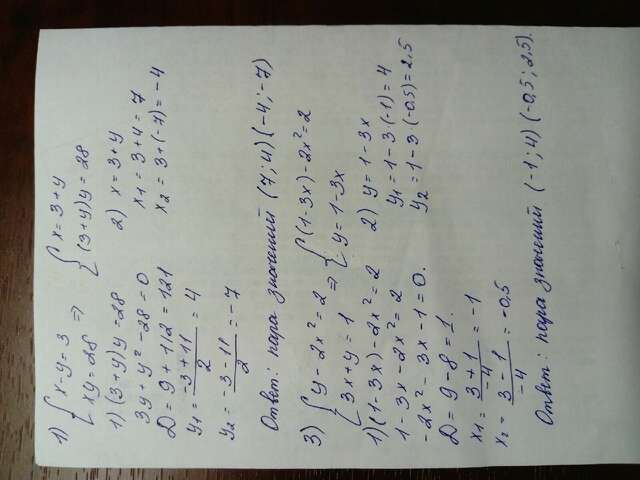 1) { x-y=3 ⇒ { x=3+y
xy=28 (3+y)y=28
1) (3+y)y=28
3y+y²-28=0
D=9+112=121
y₁=(-3+11)/2=4
y₂=(-3-11)/2=-7
2) x=3+y
x₁=3+4=7
x₂=3+(-7)=-4
Ответ: пара значений (7;4)(-4;-7)
3) { y-2x²=2 ⇒ { (1-3x)-2x²=2
3x+y=1 y=1-3x
1) (1-3x)-2x²=2
1-3x-2x²=2
-2x²-3x-1=0.
D=9-8=1.
x₁=(3+1)/-4=-1
x₂=(3-1)/-4=-0,5
2) y=1-3x
y₁=1-3(-1)=4
y₂=1-3(-0,5)=2,5
Ответ: пара значений (-1;4)(-0,5;2,5).